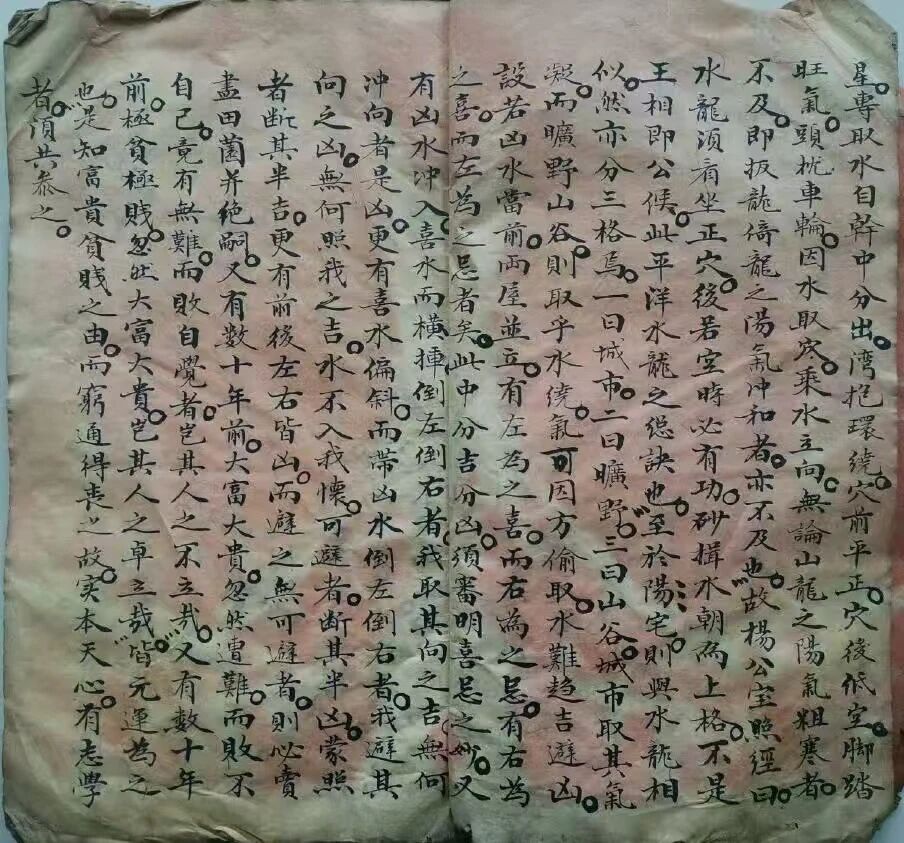 星專取水自幹中分出。湾抱環繞。穴前平正。穴後低空。脚踏
旺氣。頭枕車輪。因水取穴。乘水立向。無論山龍之陽氣粗寒者。
不及。即扳龍倚龍之陽氣冲和者。亦不及也。故楊公宝照經曰。
水龍須看坐正穴。後若空時必有功。砂揖水朝為上格。不是
王相即公候。此平洋水龍之總訣也。至於陽宅。則與水龍相
似。然亦分三格焉。一曰城市。二曰曠野。三曰山谷。城市取其氣
凝。而曠野山谷。則取乎水繞。氣可因方偷取。水難趋吉避凶。
設若凶水當前。両屋並立。有左為之喜。而右為之忌。有右為
之喜。而左為之忌者矣。此中分吉分凶。須審明喜忌之妙。又
有凶水冲入。喜水而横揷倒左倒右者。我取其向之吉。無何
冲向者是凶。更有喜水偏斜。而帶凶水倒左倒右者。我避其
向之凶。無何照我之吉。水不入我懷。可避者。断其半凶。蒙照
者断其半吉。更有前後左右皆凶。而避之無可避者。則必賣
盡田薗并绝嗣。又有数十年前。大富大貴。忽然遭難。而敗不
自己。竟有無難。而敗自覺者。岂其人之不立哉。又有数十年
前。極貧極賎。忽然大富大貴。岂其人之卓立哉。皆元運為之
也。是知富貴貧賎之由。而窮通得丧之故。实本天心。有志學
者。須共叅之。